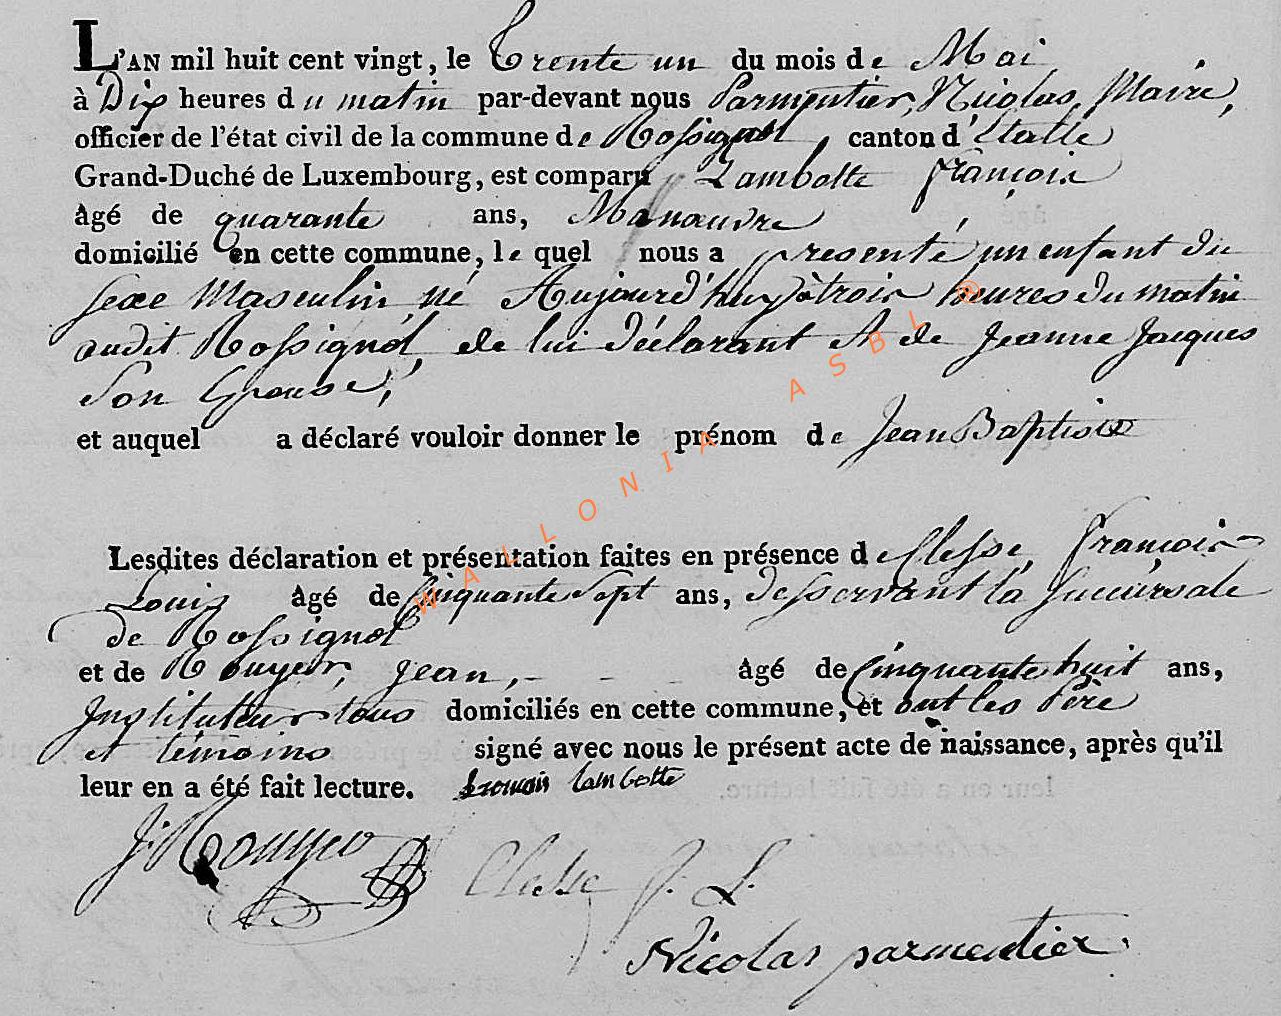 L'AN mil huit cent vingt, le Trente un du mois de Mai
à Dix heures du matin par-devant nous Parmentier, Nicolas, Maire,
officier de l'état civil de la commune de Rossignol canton d'Etalle
Grand-Duché de Luxembourg, est comparu Lambotte françois
âgé de quarante ans, Manœuvre
domicilié en cette commune, le quel nous a presenté un enfant du
sexe Masculin, né Aujourd'huy à trois heures du matin
audit Rossignol, de lui déclarant et de Jeanne Jacques
Son Epouse,
et auquel a déclaré vouloir donner le prénom de Jean Baptiste
Lesdites déclaration et présentation faites en présence de Clesse, françois
Louis âgé de Cinquante Sept ans, desservant la Succursale
de Rossignol
et de Rouyer, Jean, - - - âgé de Cinquante huit ans,
Instituteur tous domiciliés en cette commune, et ont les Père
et témoins signé avec nous le présent acte de naissance, après qu'il
leur en a été fait lecture. francois lambotte
J: Rouyer Clesse f. L.
Nicolas parmentier
WALLONIA ASBL ®